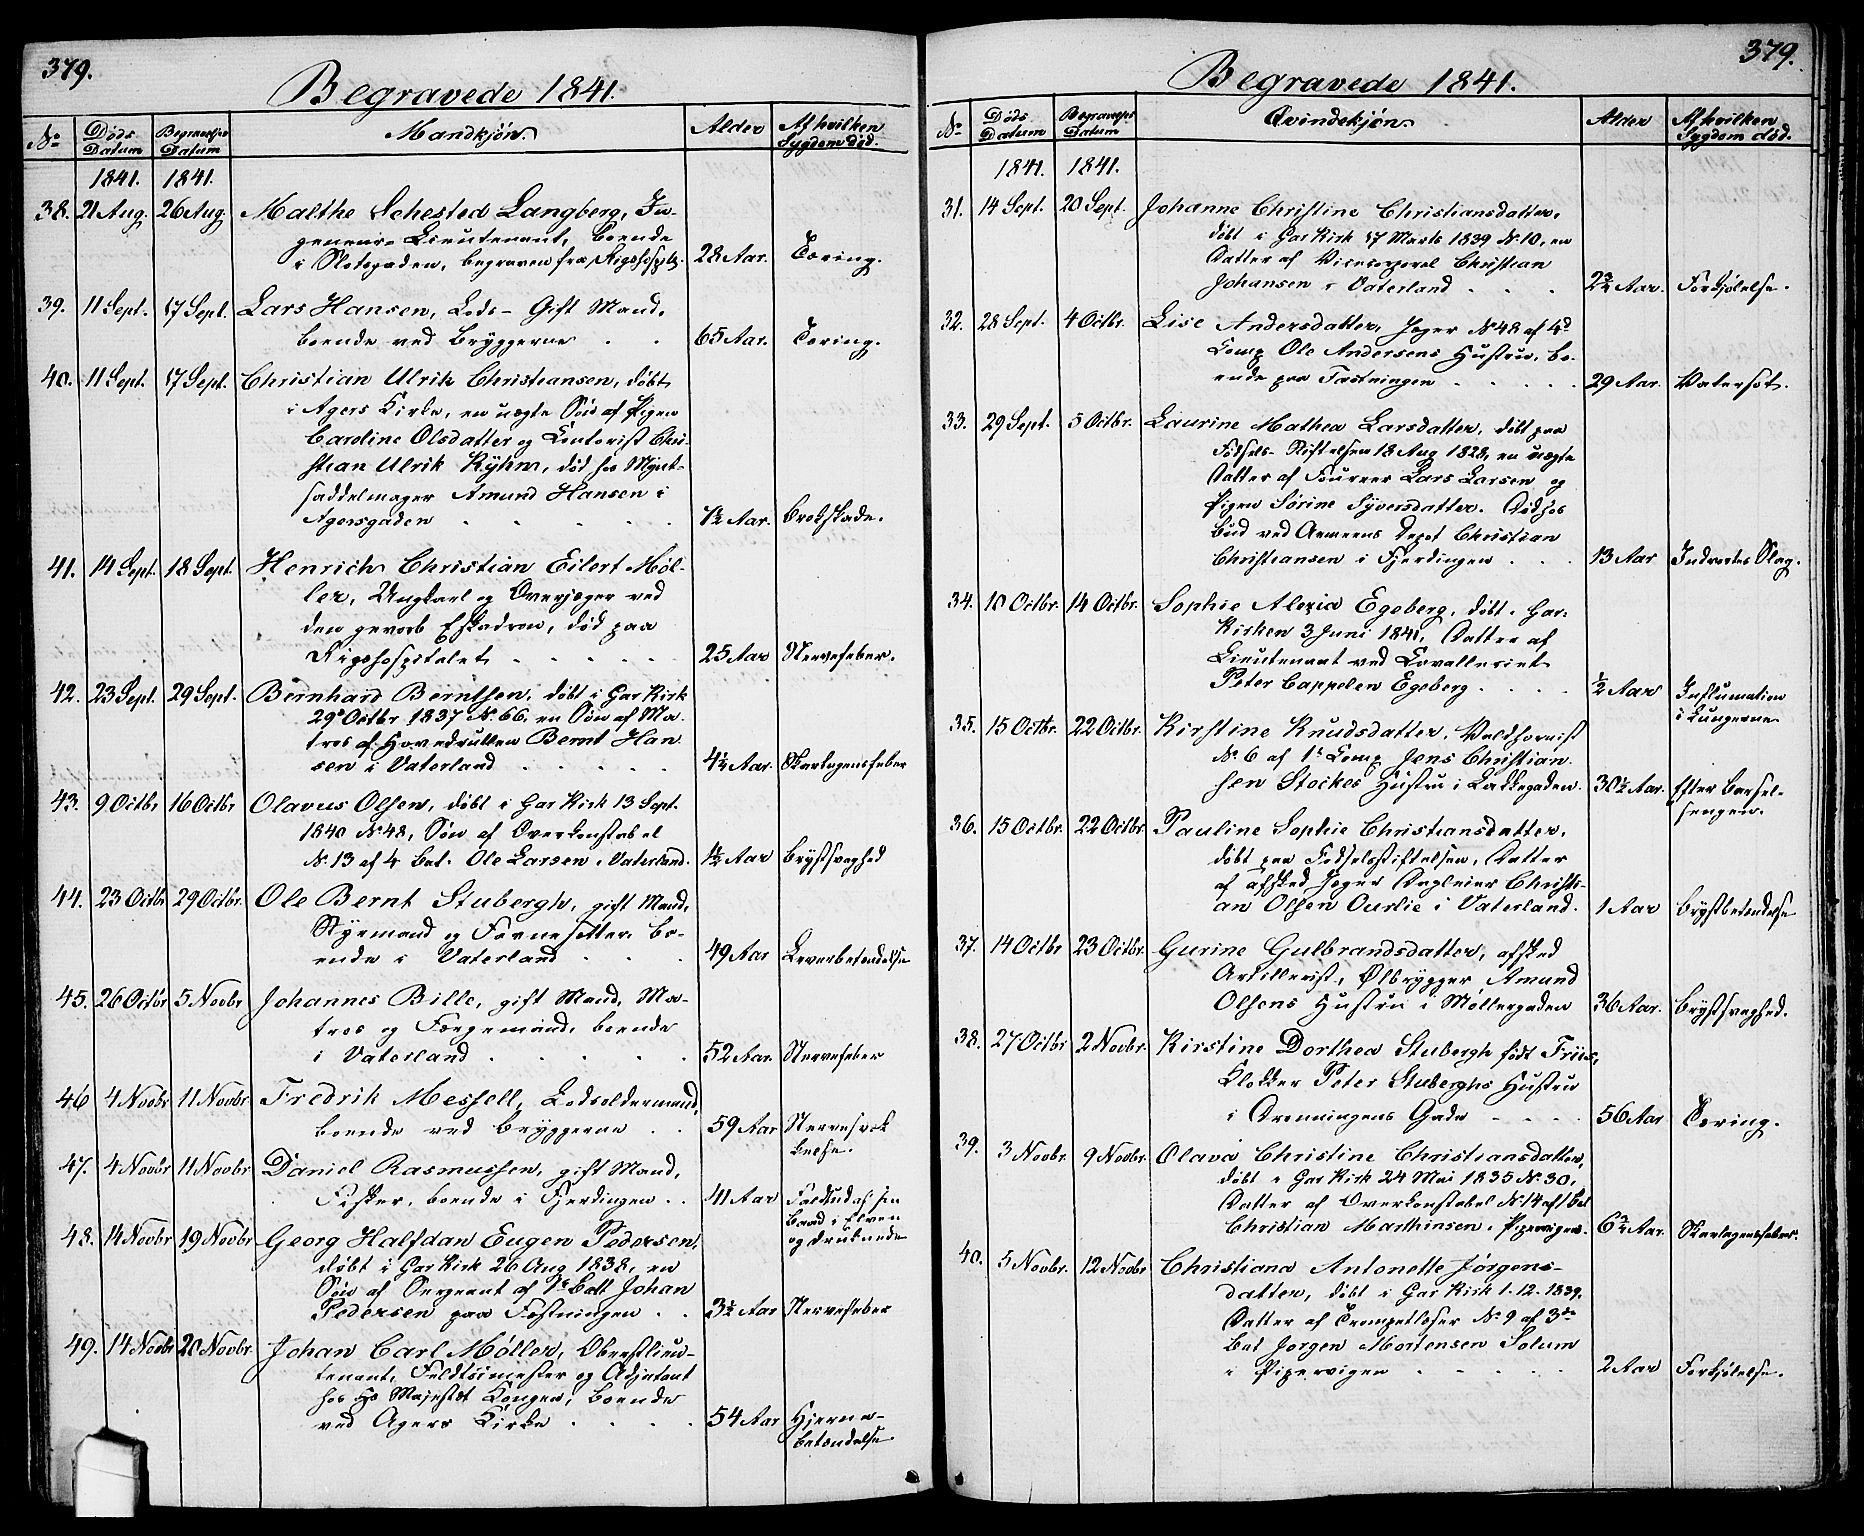 379.
Begravede 1841.
No Døds Datum Begravelses Datum Mandkjøn. Alder Af hvilken Sygdom død.
1841. 1841.
38. 21 Aug. 26 Aug. Malthe Sehested Langberg, In-
genieur-Lieutenant, boende
i Slotsgaden, begraven fra Rigshospit. 28 Aar. Tæring.
39. 11 Sept. 17 Sept. Lars Hansen, Lods- Gift Mand,
boende ved Bryggerne 65 Aar. Tæring.
40. 11 Sept. 17 Sept. Christian Ulrik Christiansen, døbt
i Agers Kirke, en uægte Søn af Pigen
Caroline Olsdatter og Contorist Chri-
stian Ulrik Ryhn, død hos Mynt-
saddelmager Amund Hansen i
Agersgaden 1½ Aar. Brokskade.
41. 14 Sept. 18 Sept. Henrich Christian Eilert Møl-
ler, Ungkarl og Overjæger ved
den gevorb Eskadron, død paa
Rigshospitalet 25 Aar Nervefeber.
42. 23 Sept. 29 Sept. Bernhard Berntsen, døbt i Gar Kirk
29 Octbr 1837 No. 66, en Søn af Ma-
tros af Hovedrullen Bernt Han
sen i Vaterland 4¼ Aar. Skarlagensfeber
43. 9 Octbr 16 Octbr Olavus Olsen, døbt i Gar Kirk 13 Sept.
1840 No 48, Søn af Overkonstabel
No. 13 af 4 Bat. Ole Larsen i Vaterland. 1½ Aar Brystsvaghed
44. 23 Octbr 29 Octbr. Ole Bernt Stubergh, gift Mand,
Styrmand og boende
i Vaterland 49 Aar Leverbetændelse
45. 26 Octbr 5 Novbr Johannes Bille, gift Mand, Ma-
tros og Færgemand, boende
i Vaterland 52 Aar. Nervefeber
46 4 Novbr 11 Novbr Fredrik Messell, Lodsoldermand,
boende ved Bryggerne 59 Aar Nervesvæk
kelse.
47. 4 Novbr 11 Novbr Daniel Rasmussen, gift Mand,
Fisker, boende i Fjerdingen 41 Aar Faldt ud af sin
Baad i Elven
og druknede
48. 14 Novbr 19 Novbr Georg Halfdan Eugen Pedersen,
døbt i Gar Kirk 26 Aug 1838, en
Søn af Sergeant af 1ste Batt Johan
Pedersen paa Fæstningen 3¼ Aar Nervefeber
49. 14 Novbr 20 Novbr. Johan Carl Møller, Oberstlieu-
tenant, Feldtsimester og Adjutant
hos Hs Majestæt Kongen, boende
ved Agers Kirke 54 Aar Hjerne-
betændelse.
379.
Begravede 1841.
No. Døds Datum Begravelses Datum Qvindekjøn. Alder Af hvilken Sygdom død.
1841. 1841.
31. 14 Sept. 20 Sept. Johanne Christine Christiansdatter,
døbt i Gar Kirk 17 Marts 1839 No. 10, en
Datter af Vicecorporal Christian
Johansen i Vaterland 2¾ Aar. Forkjølelse.
32. 28 Sept. 4 Octbr. Lise Andersdatter, Jæger No 48 af 4d
Comp Ole Andersens Hustru, bo-
ende paa Fæstningen 29 Aar. Vatersot.
33. 29 Sept. 5 Octbr. Laurine Mathea Larsdatter, døbt paa
Fødsels-Stiftelsen 18 Aug 1828, en uægte
Datter af Fourer Lars Larsen og
Pigen Sørine Syversdatter. Død hos
Bud ved Armeens Depot Christian
Christiansen i Fjerdingen 13 Aar Indvortes Slag.
34. 10 Octbr. 14 Octbr. Sophie Alexia Egeberg, døbt i Gar-
Kirken 3 Juni 1841, Datter af
Lieutenant ved Cavalleriet
Peter Cappelen Egeberg ½ Aar Inflamation
i Lungerne
35. 15 Octbr. 22 Octbr. Kirstine Knudsdatter, Valdhornist
No. 6 af 1ste Comp Jens Christian
sen Stockes Hustru i Lakkegaden. 30½ Aar. Efter Barsel-
sengen.
36. 15 Octbr. 22 Octbr. Pauline Sophie Christiansdatter,
døbt paa Fødselsstiftelsen, Datter
af afsked Jæger Dagleier Christi-
an Olsen Ourlie i Vaterland. 1 Aar Brystbetændelse
37. 14 Octbr 23 Octbr. Gurine Gulbrandsdatter, afsked
Artillerist, Ølbrygger Amund
Olsens Hustru i Møllergaden 36 Aar. Brystsvaghed.
38. 27 Octbr 2 Novbr. Kirstine Dorthea Stubergh født Friis,
Klokker Peter Stuberghs Hustru
i Dronningens Gade 56 Aar Tæring.
39. 3 Novbr. 9 Novbr. Olava Christine Christiansdatter,
døbt i Gar Kirk 24 Mai 1835 No. 30,
Datter af Overkonstabel No. 14 af 1 Bat
Christian Marthinsen i Pipervigen. 6¾ Aar. Skarlagensfeber.
40. 5 Novbr. 12 Novbr Christiana Antonette Jørgens-
datter, døbt i Gar Kirk 1-12-1839.
Datter af Trompetblæser No. 9 af 3die
Bat Jørgen Mortensen Solum
i Pipervigen 2 Aar Forkjølelse.